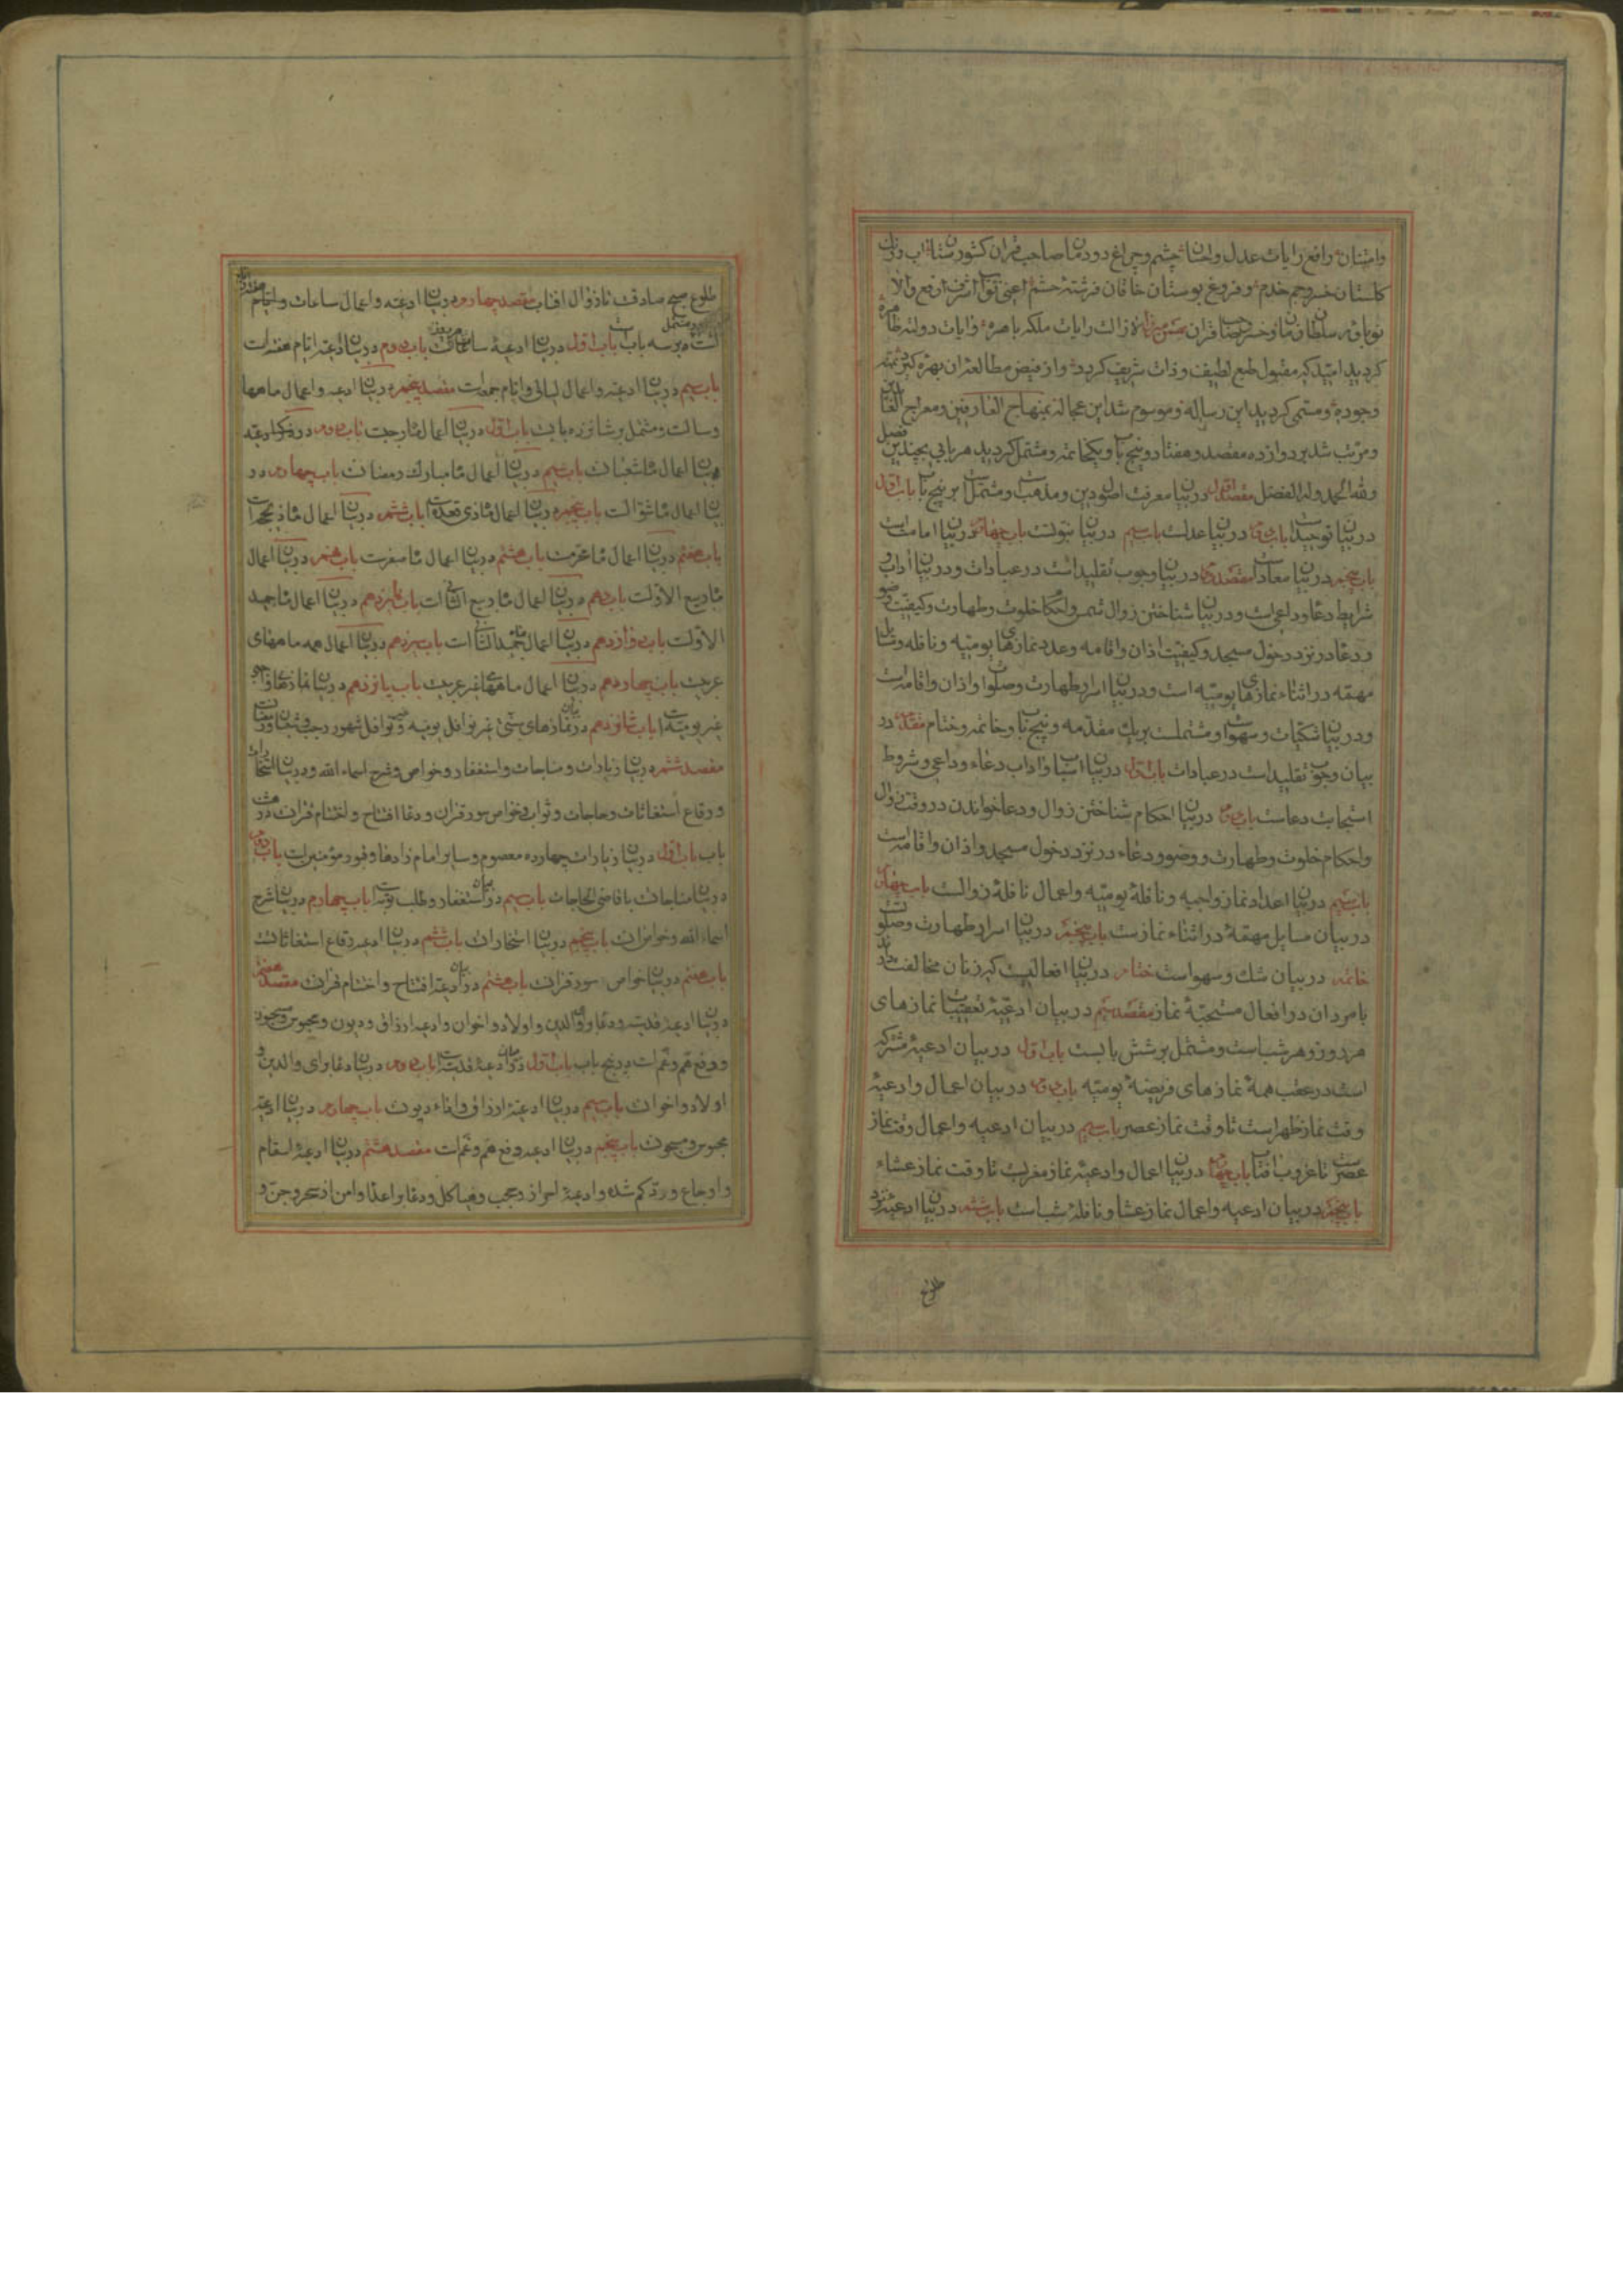 وامتنان رافع رایات عدل واحسان چشم وچراغ دودمان صاحب قران کشورستان اب ورنك
کلستان خسرو جم خدم وفروغ بوستان خاقان فرشته حشم اعنی نواب اشرف ارفع والا
نوباوه سلطان زمان وخسرو صاحبقران زالت رایات ملکه باهرة وایات دولته ظاهرة
کردید امید که مقبول طبع لطیف وذات شریف کردد واز فیض مطالعه ان بهره کیرد
وجوده ومسمی کردید این رساله وموسوم شد این عجاله بمنهاج العارفین ومعراج العابدین
ومرتب شد بر دوازده مقصد وهفتاد وپنج باب ویکخاتمه ومشتمل کردید هر بابی بچندین فصل
ولله الحمد وله الفضل مقصد اول در بیان معرفت اصول دین ومذهب ومشتمل است بر پنج باب باب اول
در بیان توحید است باب دوم در بیان عدلست باب سیم در بیان نبوتست باب چهارم در بیان امامت است
باب پنجم در بیان معاد است مقصد دوم در بیان وجوب تقلید است در عبادات ودر بیان آداب و
شرایط دعا وداعی است ودر بیان شناختن زوال شمس واحکام خلوت وطهارت وکیفیت وضو
ودعا در نزد دخول مسجد وکیفیت اذان واقامه وعدد نمازهای یومیه ونافله ومسایل
مهمه در اثناء نمازهای یومیه است ودر بیان اسرار طهارت وصلوات واذان واقامه است
ودر بیان شکیات وسهویات ومشتملست بر یك مقدمه وپنج باب وخاتمه وختام مقدمه در
بیان وجوب تقلید است در عبادات باب اول در بیان اسباب واداب دعاء وداعی وشروط
استجابت دعاست باب دوم در بیان احکام شناختن زوال ودعا خواندن در وقت زوال
واحکام خلوت وطهارت ووضو ودعاء در نزد دخول مسجد واذان واقامه است
باب سیم در بیان اعداد نماز واجبه ونافلهٔ یومیه واعمال نافلهٔ زوالست باب چهارم
در بیان مسایل مهمهٔ در اثناء نماز ست باب پنجم در بیان اسرار طهارت وصلوت
خاتمه در بیان شك وسهو است ختام در بیان افعالیست که زنان مخالفت دارند
با مردان در افعال مستحبهٔ نماز مقصد سیم در بیان ادعیهٔ تعقیبات نمازهای
هر روز وهر شب است ومشتمل بر شش بابست باب اول در بیان ادعیهٔ مشترکه
است در عقب همهٔ نمازهای فریضهٔ یومیه باب دوم در بیان اعمال وادعیهٔ
وقت نماز ظهر است تا وقت نماز عصر باب سیم در بیان ادعیه واعمال وقت نماز
عصر است تا غروب افتاب باب چهارم در بیان اعمال وادعیهٔ نماز مغرب تا وقت نماز عشاء
باب پنجم در بیان ادعیه واعمال نماز عشا ونافلهٔ شب است باب ششم در بیان ادعیهٔ نزد
طلوع
طلوع صبح صادقت تا زوال افتاب مقصد چهارم در بیان ادعیه واعمال ساعات وایام هفته
است وبر سه باب باب اول در بیان ادعیهٔ ساعات باب دوم در بیان ادعیه ایام هفته است
باب سیم در بیان ادعیه واعمال لیالی وایام جمعه است مقصد پنجم در بیان ادعیه واعمال ماهها
وسالست ومشتمل بر شانزده بابست باب اول در بیان اعمال ماه رجبست باب دوم در
بیان اعمال ماه شعبانست باب سیم در بیان اعمال ماه مبارك رمضانست باب چهارم در
بیان اعمال ماه شوالست باب پنجم در بیان اعمال ماه ذی قعده است باب ششم در بیان اعمال ماه ذیحجه است
باب هفتم در بیان اعمال ماه محرمست باب هشتم در بیان اعمال ماه صفرست باب نهم در بیان اعمال
ماه ربیع الاولست باب دهم در بیان اعمال ماه ربیع الثانی است باب یازدهم در بیان اعمال ماه جمید
الاولست باب دوازدهم در بیان اعمال ماه جمید الثانی است باب سیزدهم در بیان اعمال همه ماههای
عربیست باب چهاردهم در بیان اعمال ماههای غیر عربیست باب پانزدهم در بیان نمازهای واجبه
غیر یومیه است باب شانزدهم در بیان نمازهای سنتی غیر نوافل یومیه ونوافل شهور رجب وشعبان ورمضانست
مقصد ششم در بیان زیارات ومناجات واستغفار وخواص وشرح اسماء الله ودر بیان استخارات
ورقاع استغاثات وحاجات وثواب وخواص سور قران ودعا افتتاح واختتام قرانست در هشت
باب باب اول در بیان زیارات چهارده معصوم وسایر امام زادها وقبور مؤمنین است باب دوم
در بیان مناجات با قاضی الحاجات باب سیم در بیان استغفار وطلب توبه است باب چهارم در بیان شرح
اسماء الله وخواص انست باب پنجم در بیان استخارات باب ششم در بیان ادعیه رقاع استغاثاتست
باب هفتم در بیان خواص سور قرانست باب هشتم در بیان ادعیه افتتاح واختتام قرانست مقصد هفتم
در بیان ادعیهٔ فدیته ودعا والدین واولاد واخوان وادعیه ارزاق ودیون ومحبوس ومسجون
ودفع هم وغم است در پنج باب باب اول در بیان ادعیهٔ فدیته است باب دوم در بیان دعا برای والدین و
اولاد واخوانست باب سیم در بیان ادعیهٔ ارزاق واداء دیونست باب چهارم در بیان ادعیهٔ
محبوس ومسجونست باب پنجم در بیان ادعیه دفع هم وغم است مقصد هشتم در بیان ادعیهٔ اسقام
واوجاع ورد کم شده وادعیهٔ احراز وحجب وهیاکل ودعا بر اعدا وامن از سحر وجن و